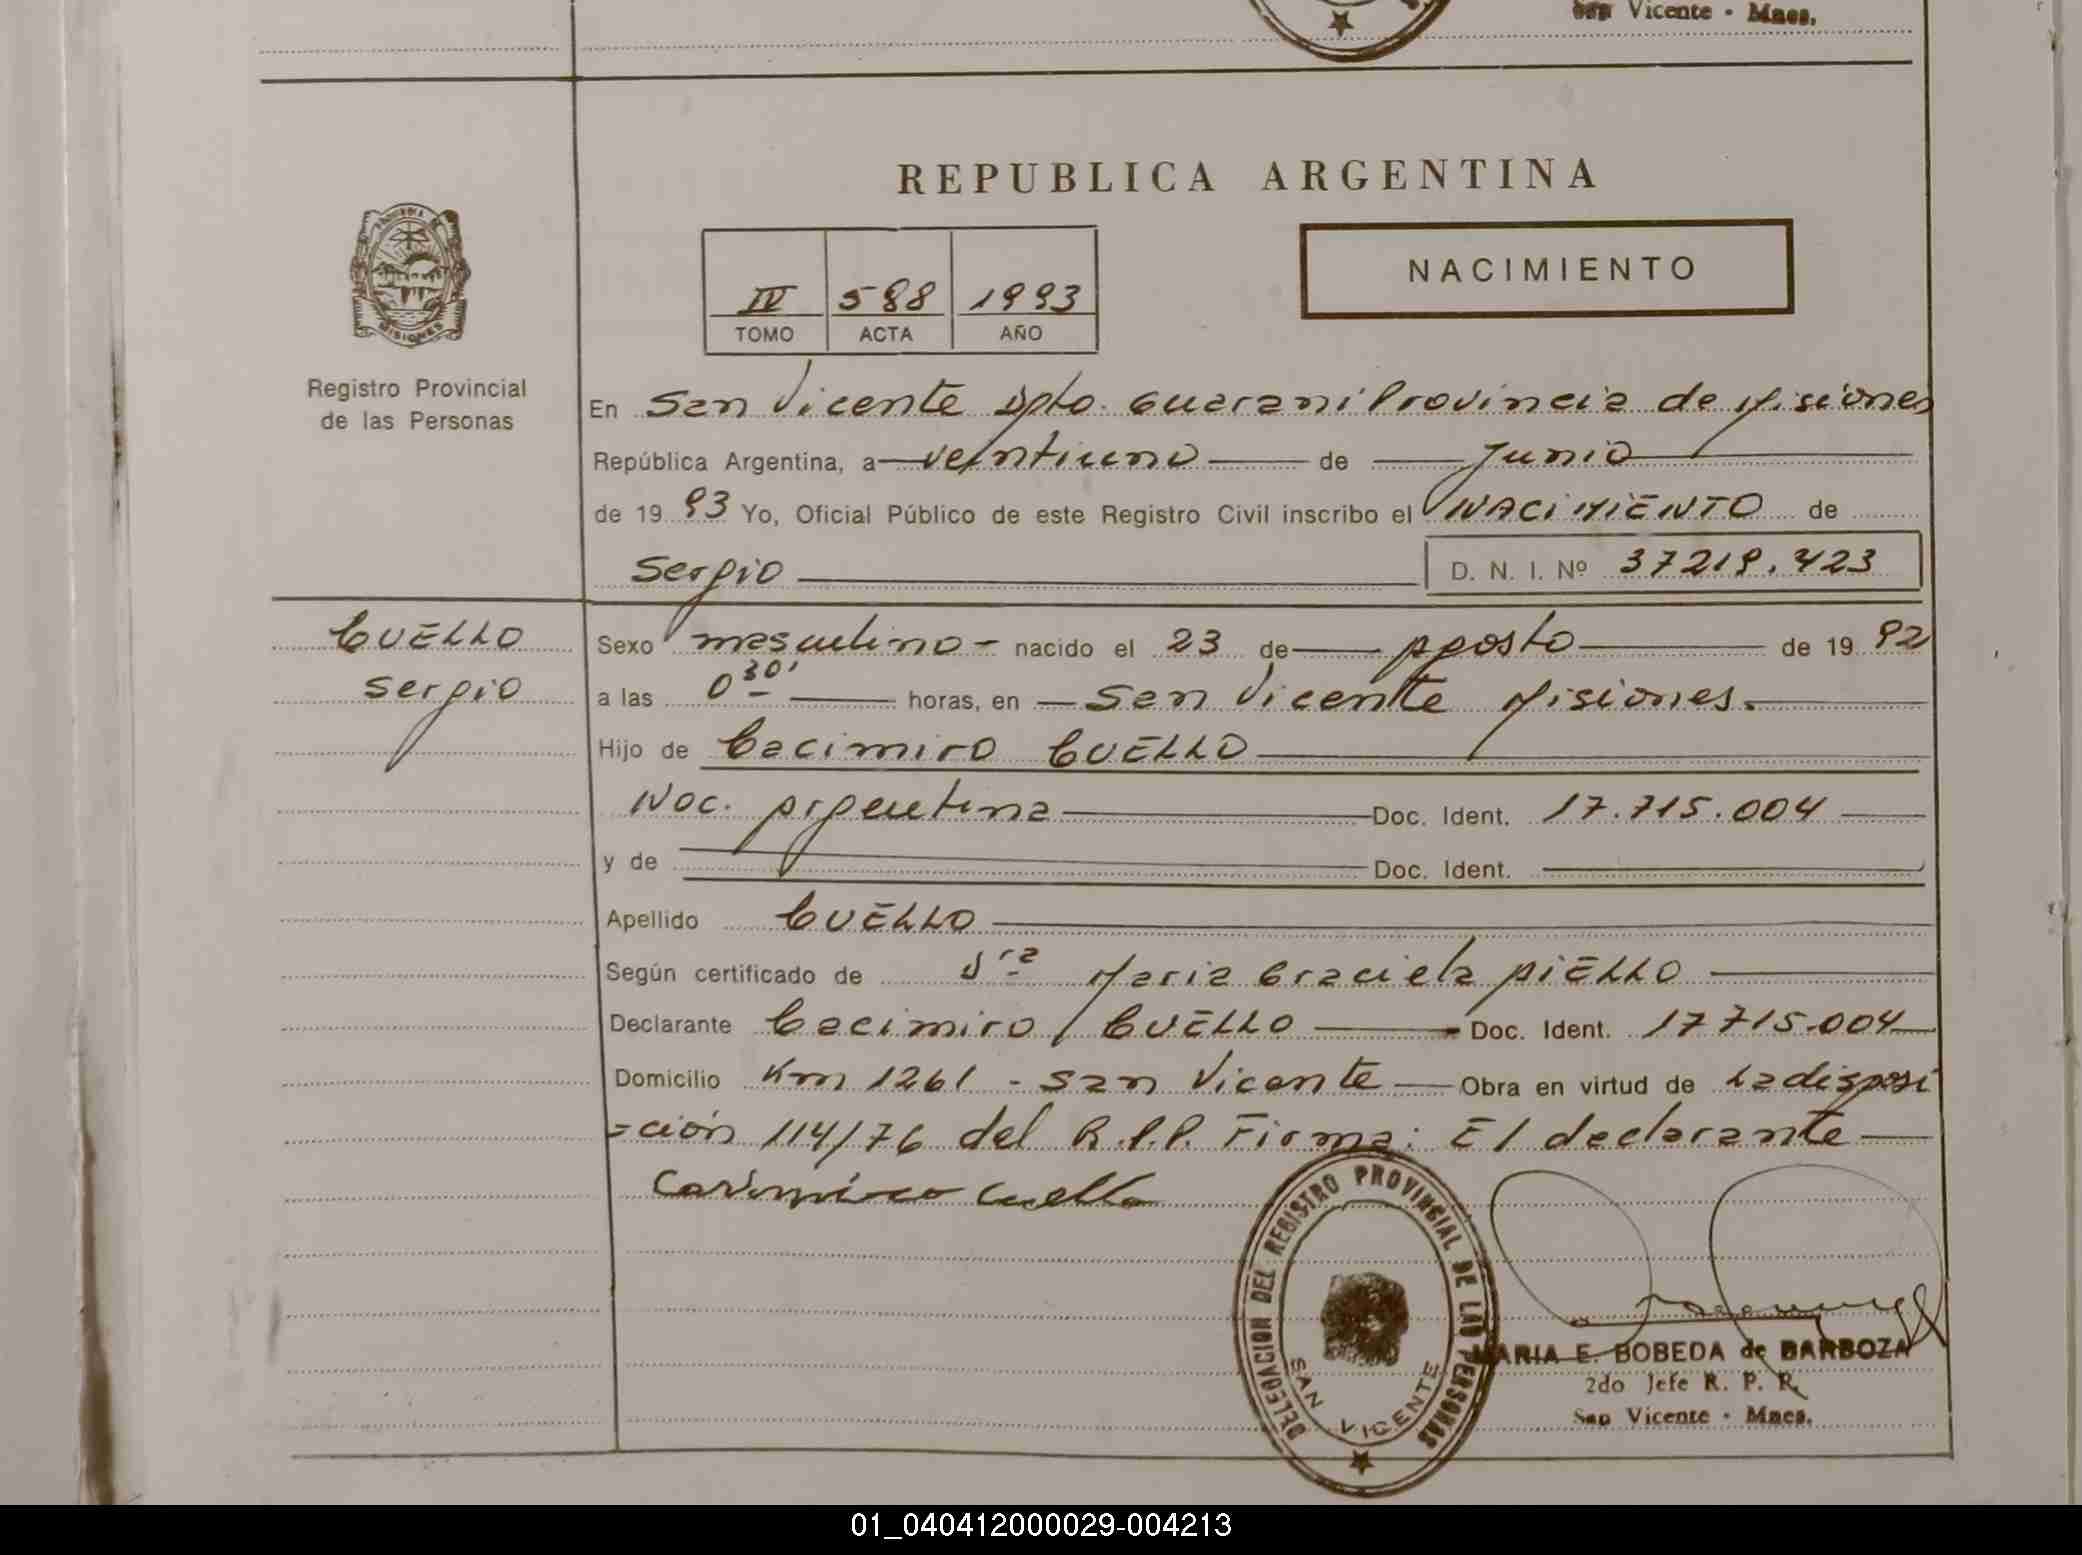 San Vicente - Mnes.
REPUBLICA ARGENTINA
PROVINCIA DE MISIONES
Registro Provincial
de las Personas
IV 588 1993
TOMO ACTA AÑO
NACIMIENTO
En San Vicente Dpto. Guarani Provincia de Misiones
República Argentina, a veintiuno de Junio
de 19 93 Yo, Oficial Público de este Registro Civil inscribo el NACIMIENTO de
Sergio D. N. I. Nº 37219.423
CUELLO
Sergio
Sexo masculino - nacido el 23 de Agosto de 19 92
a las 0 30' horas, en San Vicente Misiones.
Hijo de Cacimiro CUELLO
Nac. Argentina Doc. Ident. 17.715.004
y de Doc. Ident.
Apellido CUELLO
Según certificado de Sra Maria Graciela AiELLO
Declarante Cacimiro CUELLO Doc. Ident. 17715.004
Domicilio Km 1261 - San Vicente Obra en virtud de La disposi
=ción 114/76 del R.P.P. Firma: El declarante
Casimiro Cuello
DELEGACION DEL REGISTRO PROVINCIAL DE LAS PERSONAS
SAN VICENTE
MARIA E. BOBEDA de BARBOZA
2do Jefe R. P. P.
San Vicente - Mnes.
01_040412000029-004213